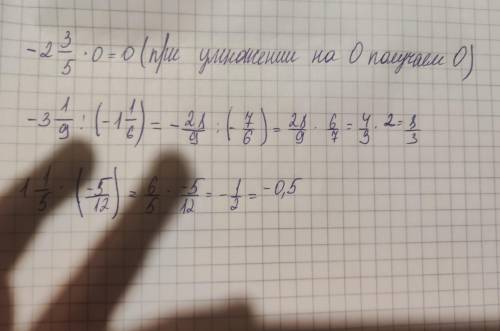 -2 3/5 · 0 = 0 (при умножении на 0 получаем 0)
-3 1/9 : (-1 1/6) = -28/9 : (-7/6) = 28/9 · 6/7 = 4/3 · 2 = 8/3
1 1/5 · (-5/12) = 6/5 · -5/12 = -1/2 = -0,5